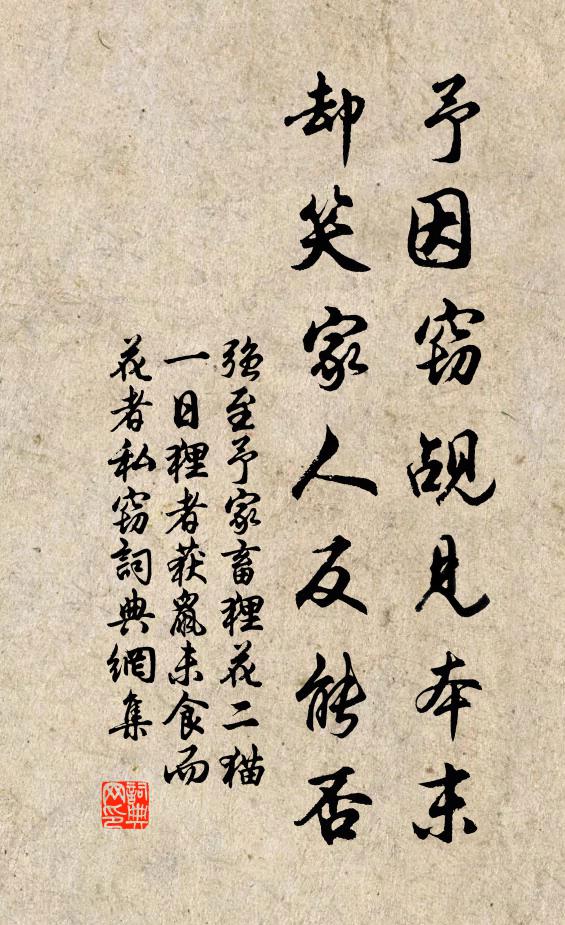 予因竊覘見本末
却笑家人反能否
強至予家畜狸花二猫
一日狸者获鼠未食而
花者私竊詞典網集
詞典网印